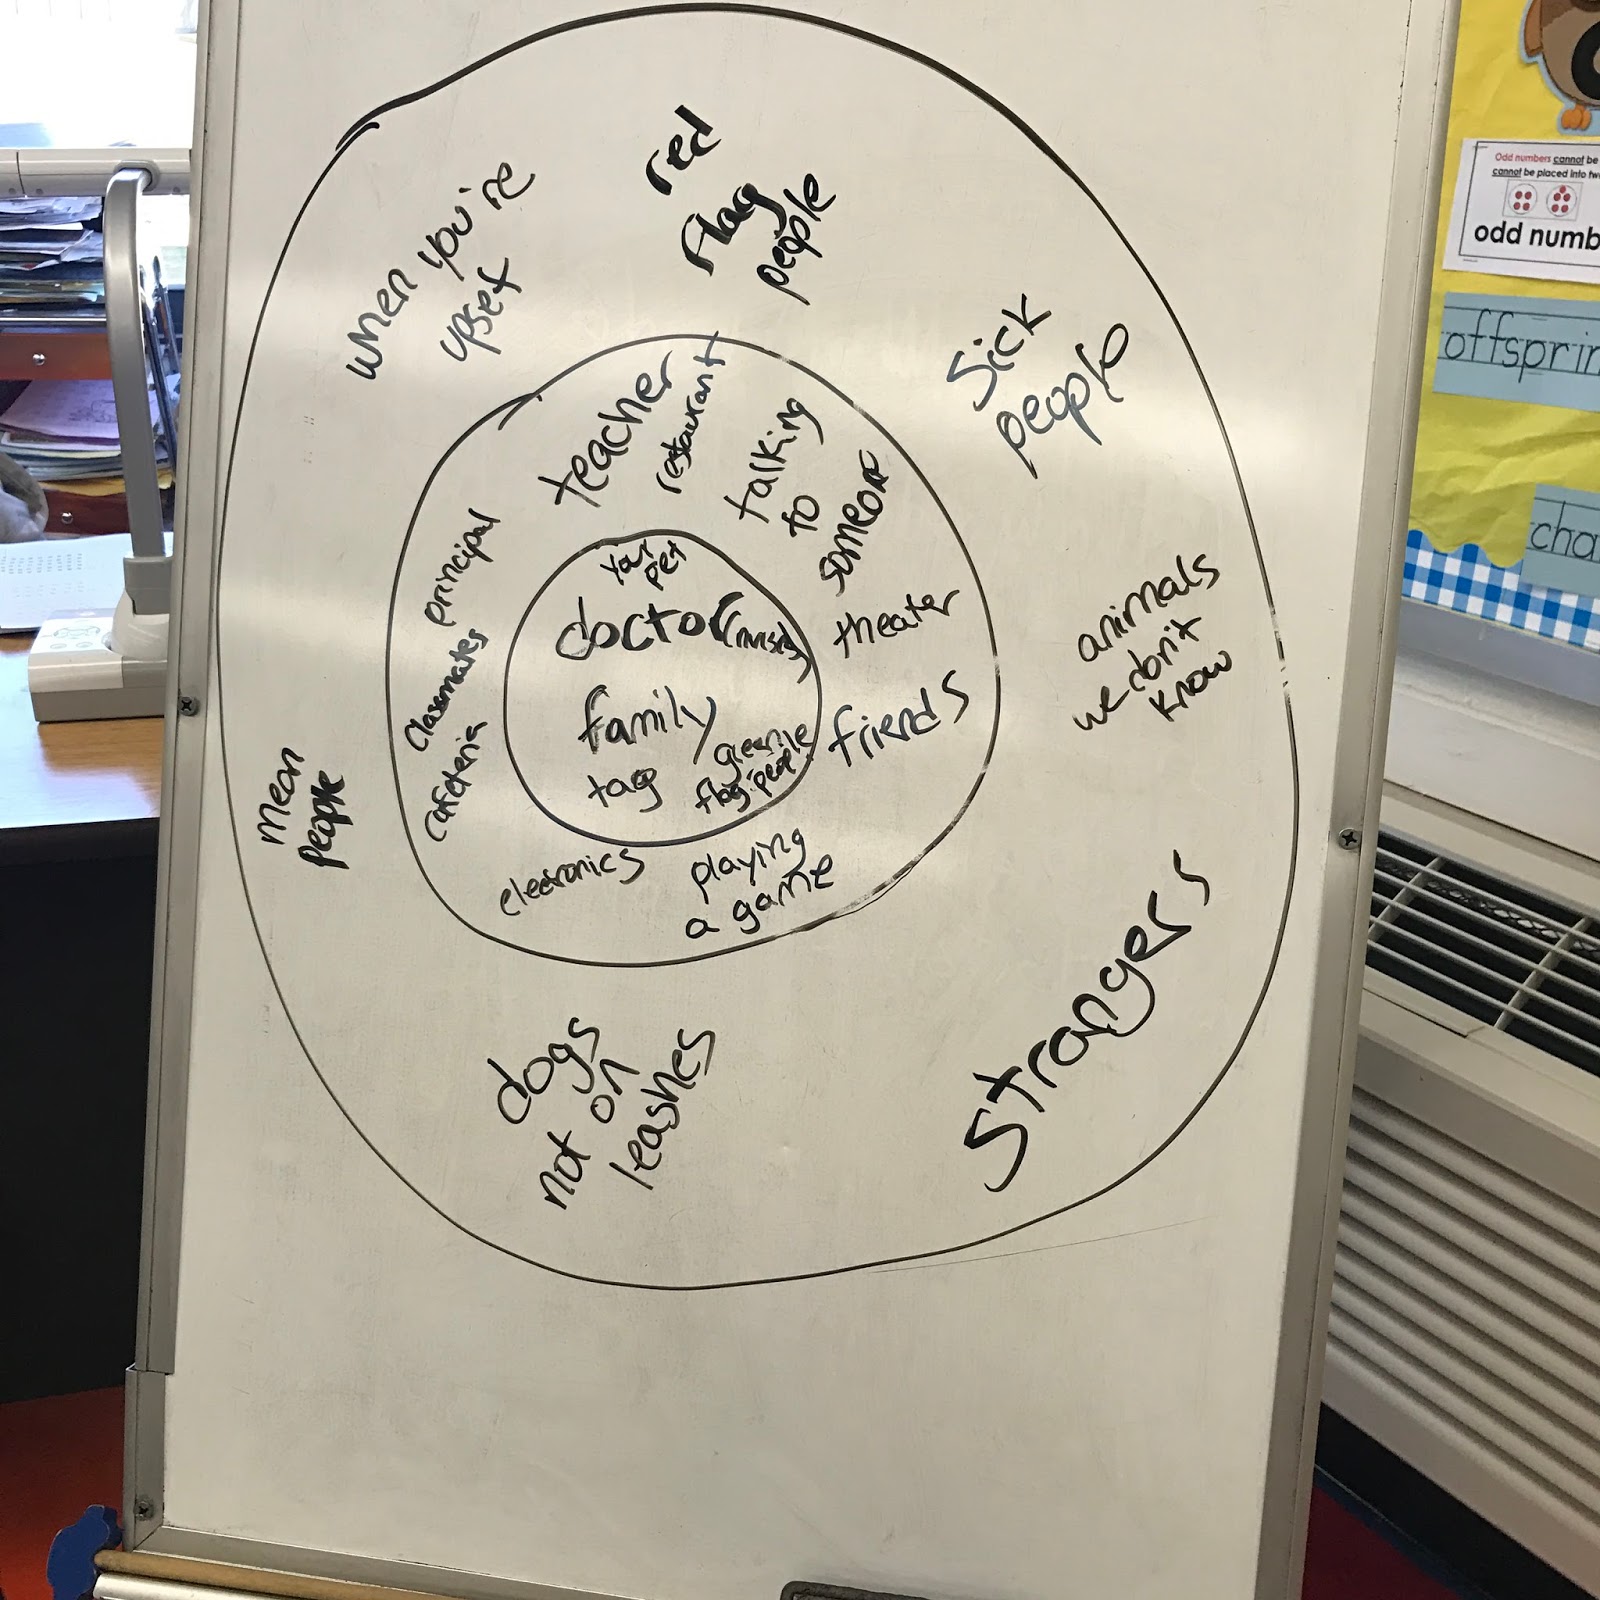 red
flag
people
when you're
upset
sick
people
animals
we don't
know
strangers
dogs
not on
leashes
mean
people
teacher
restaurant
talking
to
someone
theater
friends
playing
a game
electronics
cafeteria
classmates
principal
your
pet
doctor
family
tag
green
flag people
Odd numbers cannot be
cannot be placed into
odd numb
offsprin
cha